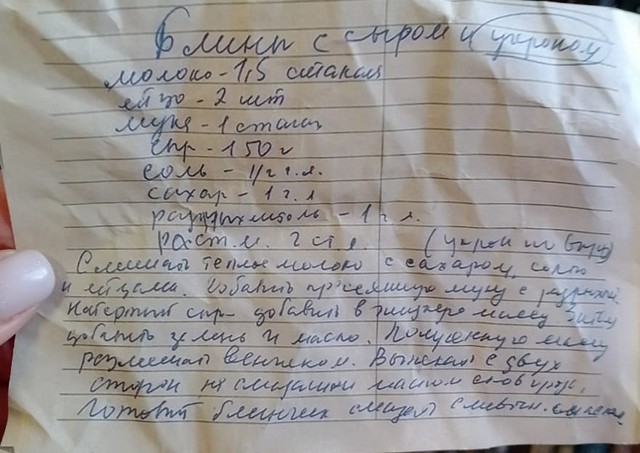 Блины с сыром и укропом
молоко - 1,5 стакана
яйцо - 2 шт
мука - 1 стакан
сыр - 150 г
соль - 1/2 ч.л.
сахар - 1 ч.л
разрыхлитель - 1 ч.л.
раст.м. 2 ст.л. (укроп по вкусу)
Смешать теплое молоко с сахаром, солью
и яйцами. Добавить просеянную муку с разрыхл.
Натертый сыр добавить в жидкую массу
добавить зелень и масло. Полученную массу
размешать венчиком. Выпекать с двух
сторон на смазанной маслом сковороде.
Готовый блинчик смазать сливочн. маслом